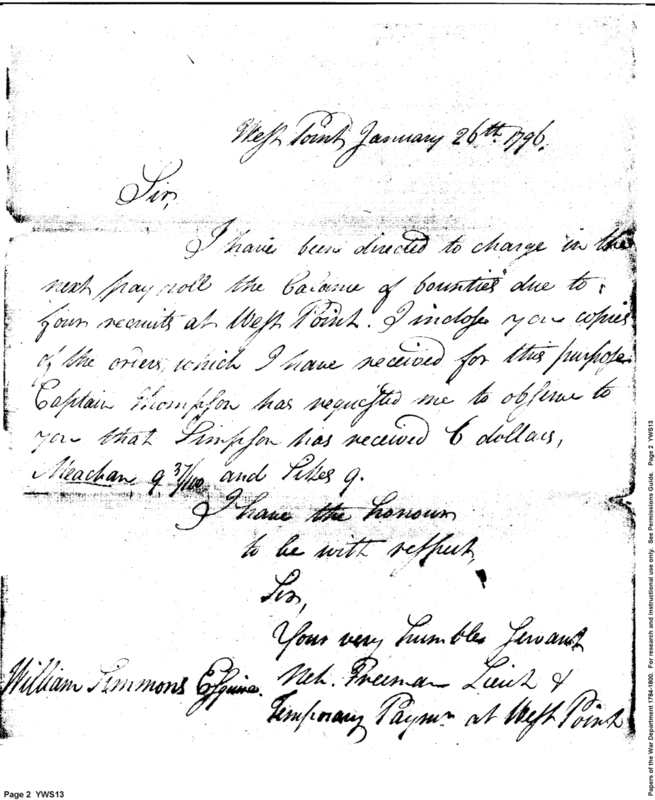 West Point January 26th. 1796.
Sir,
I have been directed to charge in the
next pay roll the balance of bounties due to
four recruits at West Point. I inclose you copies
of the orders which I have received for this purpose
Captain Thompson has requested me to observe to
you that Simpson has received 6 dollars,
Meachan, 9 37/100 and Sikes 9.
I have the honour
to be with respect,
Sir,
Your very humble Servant
William Simmons Esquire.
Neh. Freeman Lieut &
Temporary Paymr at West Point
Page 2 YWS13
Papers of the War Department 1784-1800. For research and instructional use only. See Permissions Guide. Page 2 YWS13